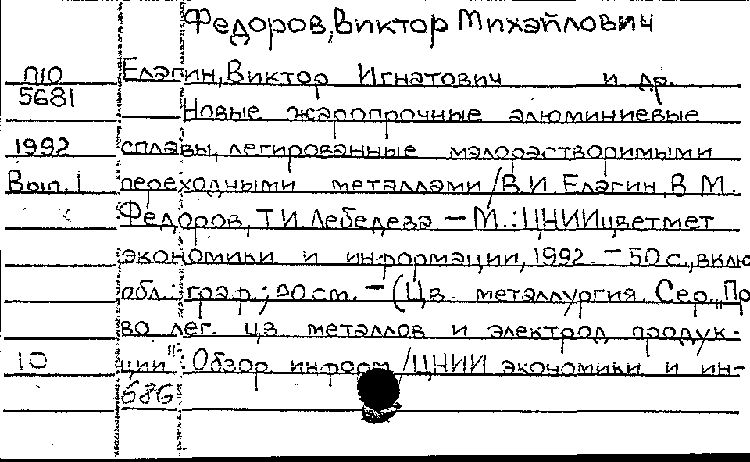 Федоров, Виктор Михайлович
П10 Елагин, Виктор Игнатович и др.
5681 Новые жаропрочные алюминиевые
1992 сплавы, легированные малорастворимыми
Вып. 1 переходными металлами / В.И. Елагин, В.М.
Федоров, Т.И. Лебедева — М.: ЦНИИцветмет
экономики и информации, 1992. — 50 с., включ
обл.: граф.; 20 см. — (Цв. металлургия. Сер. „Пр
во лег. цв. металлов и электрод. продук-
10 ции": Обзор. информ. / ЦНИИ экономики и ин-
686